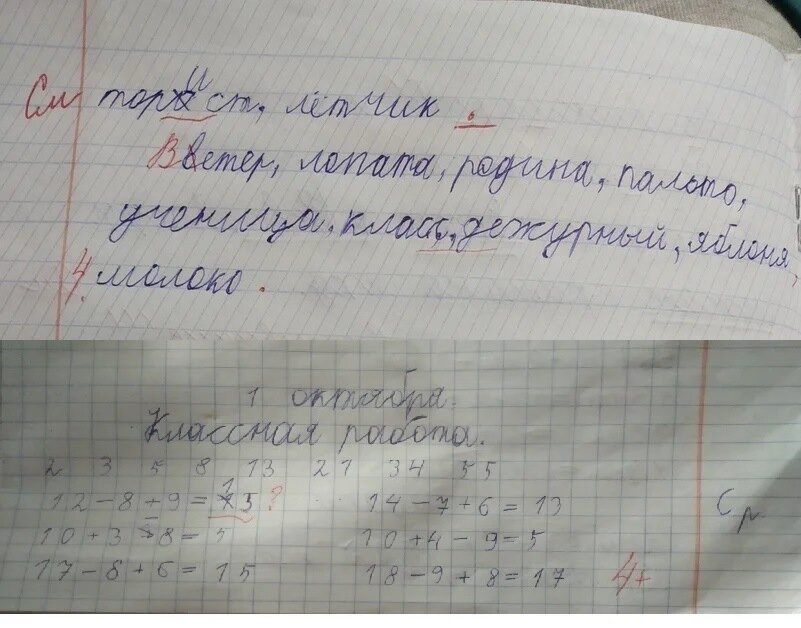 См торист, лётчик.
Ветер, лопата, родина, пальто,
ученица, класс, дежурный, яблоня,
4 молоко.
1 октября.
Классная работа.
2 3 5 8 13 21 34 55
12-8+9=13? 14-7+6=13
10+3-8=5 10+4-9=5
17-8+6=15 18-9+8=17 4+
Ср